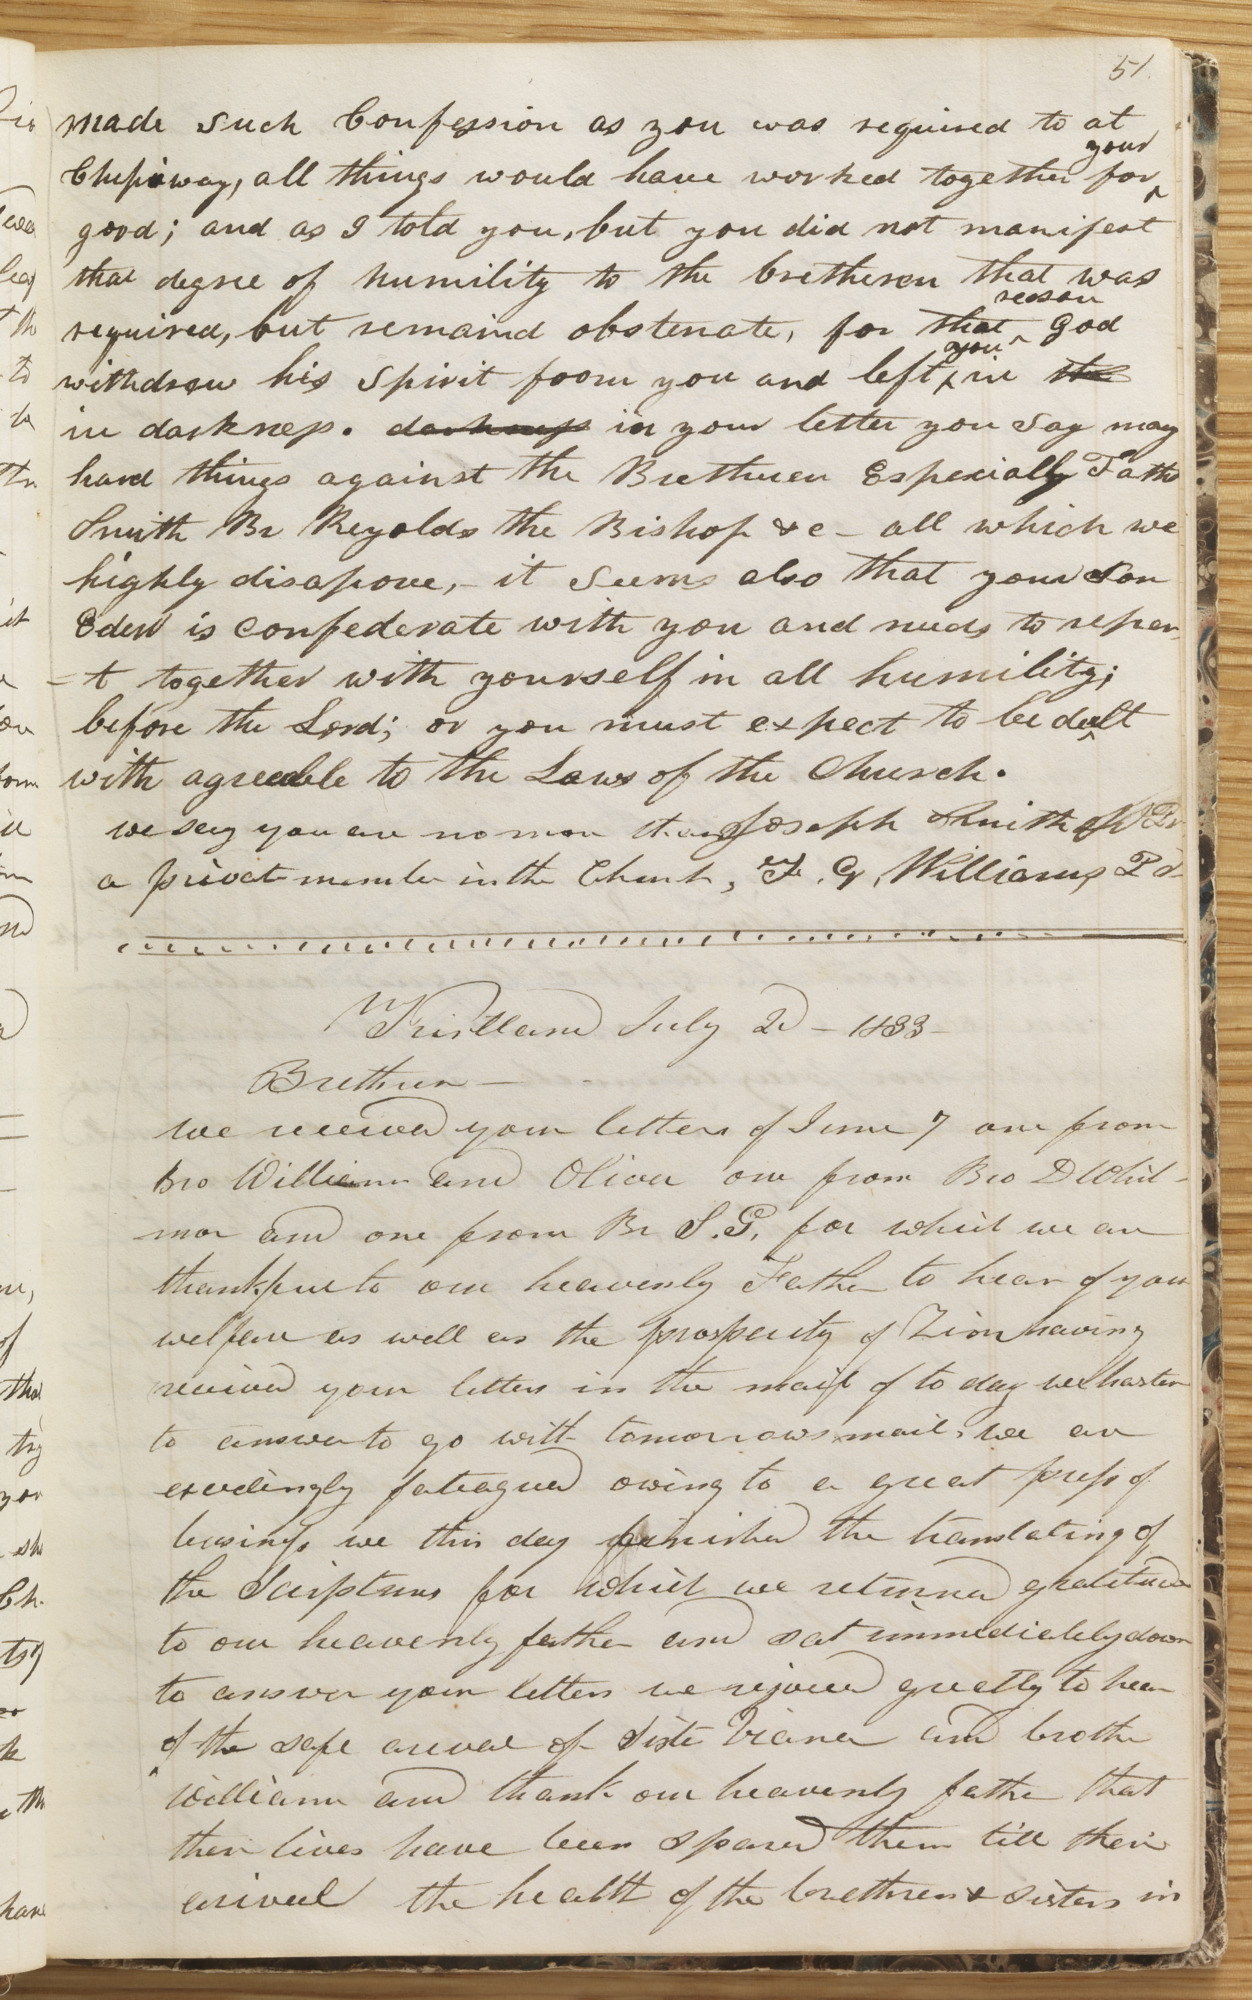 51
made such Confession as you was required to at
Chipiway, all things would have worked together for your
good; and as I told you, but you did not manifest
that degree of humility to the bretheren that was
required, but remaind obstenate, for that reason God
withdrew his Spirit from you and left you in the
in darkness. darkness in your letter you say may
hard things against the Brethren Especially Fathe
Smith Br Reyolds the Bishop &c - all which we
highly disapove, - it seems also that your Son
Eden is confederate with you and needs to repen
=t together with yourself in all humility;
before the Lord; or you must expect to be dealt
with agreeable to the Laws of the Church.
we say you are no more than Joseph Smith Jr Pr
a privat member in the Church, F. G. Williams Pd
Kirtland July 2d - 1833 -
Brethren -
we received your letters of June 7 one from
bro William and Oliver one from Bro D Whit-
mer and one from Br S. G. for which we are
thankful to our heavenly Father to hear of your
welfare as well as the prosperity of Zion having
received your letters in the mail of to day we hasten
to answer to go with tomorrows mail, we are
excedingly fatagued owing to a great press of
buisness we this day finished the translating of
the Scriptures for which we returned gratitude
to our heavenly father and sat immediately down
to answer your letters we rejoiced greatly to hear
of the safe arival of Sister Viana and brother
William and thank our heavenly father that
their lives have been spared them till their
arival the health of the brethren & sisters in